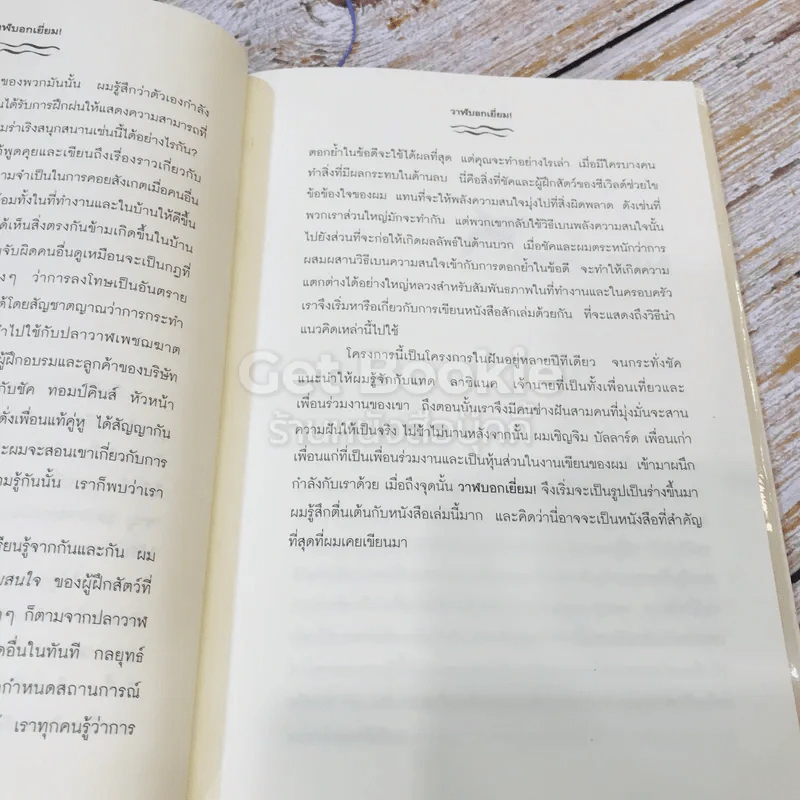 าฬบอกเยี่ยม!
ของพวกมันนั้น ผมรู้สึกว่าตัวเองกำลัง
นได้รับการฝึกฝนให้แสดงความสามารถที่
มร่าเริงสนุกสนานเช่นนี้ได้อย่างไรกัน?
้พูดคุยและเขียนถึงเรื่องราวเกี่ยวกับ
ามจำเป็นในการคอยสังเกตเมื่อคนอื่น
้อมทั้งในที่ทำงานและในบ้านให้ดีขึ้น
ด้เห็นสิ่งตรงกันข้ามเกิดขึ้นในบ้าน
จับผิดคนอื่นดูเหมือนจะเป็นกฎที่
งๆ ว่าการลงโทษเป็นอันตราย
ต้โดยสัญชาตญาณว่าการกระทำ
ำไปใช้กับปลาวาฬเพชฌฆาต
ผู้ฝึกอบรมและลูกค้าของบริษัท
กับชัค ทอมป์คินส์ หัวหน้า
ดั่งเพื่อนแท้คู่หู ได้สัญญากัน
ะผมจะสอนเขาเกี่ยวกับการ
มรู้กันนั้น เราก็พบว่าเรา
รียนรู้จากกันและกัน ผม
มสนใจ ของผู้ฝึกสัตว์ที่
ๆ ก็ตามจากปลาวาฬ
ดอื่นในทันที กลยุทธ์
กำหนดสถานการณ์
เราทุกคนรู้ว่าการ
วาฬบอกเยี่ยม!
ตอกย้ำในข้อดีจะใช้ได้ผลที่สุด แต่คุณจะทำอย่างไรเล่า เมื่อมีใครบางคน
ทำสิ่งที่มีผลกระทบในด้านลบ นี่คือสิ่งที่ชัคและผู้ฝึกสัตว์ของซีเวิลด์ช่วยไข
ข้อข้องใจของผม แทนที่จะให้พลังความสนใจมุ่งไปที่สิ่งผิดพลาด ดังเช่นที่
พวกเราส่วนใหญ่มักจะทำกัน แต่พวกเขากลับใช้วิธีเบนพลังความสนใจนั้น
ไปยังส่วนที่จะก่อให้เกิดผลลัพธ์ในด้านบวก เมื่อชัคและผมตระหนักว่าการ
ผสมผสานวิธีเบนความสนใจเข้ากับการตอกย้ำในข้อดี จะทำให้เกิดความ
แตกต่างได้อย่างใหญ่หลวงสำหรับสัมพันธภาพในที่ทำงานและในครอบครัว
เราจึงเริ่มหารือเกี่ยวกับการเขียนหนังสือสักเล่มด้วยกัน ที่จะแสดงถึงวิธีนำ
แนวคิดเหล่านี้ไปใช้
โครงการนี้เป็นโครงการในฝันอยู่หลายปีทีเดียว จนกระทั่งชัค
แนะนำให้ผมรู้จักกับแทด ลาซิแนค เจ้านายที่เป็นทั้งเพื่อนเที่ยวและ
เพื่อนร่วมงานของเขา ถึงตอนนั้นเราจึงมีคนช่างฝันสามคนที่มุ่งมั่นจะสาน
ความฝันให้เป็นจริง ไม่ช้าไม่นานหลังจากนั้น ผมเชิญจิม บัลลาร์ด เพื่อนเก่า
เพื่อนแก่ที่เป็นเพื่อนร่วมงานและเป็นหุ้นส่วนในงานเขียนของผม เข้ามาผนึก
กำลังกับเราด้วย เมื่อถึงจุดนั้น วาฬบอกเยี่ยม! จึงเริ่มจะเป็นรูปเป็นร่างขึ้นมา
ผมรู้สึกตื่นเต้นกับหนังสือเล่มนี้มาก และคิดว่านี่อาจจะเป็นหนังสือที่สำคัญ
ที่สุดที่ผมเคยเขียนมา
Get Bookie
ร้านหนังสือยุคล